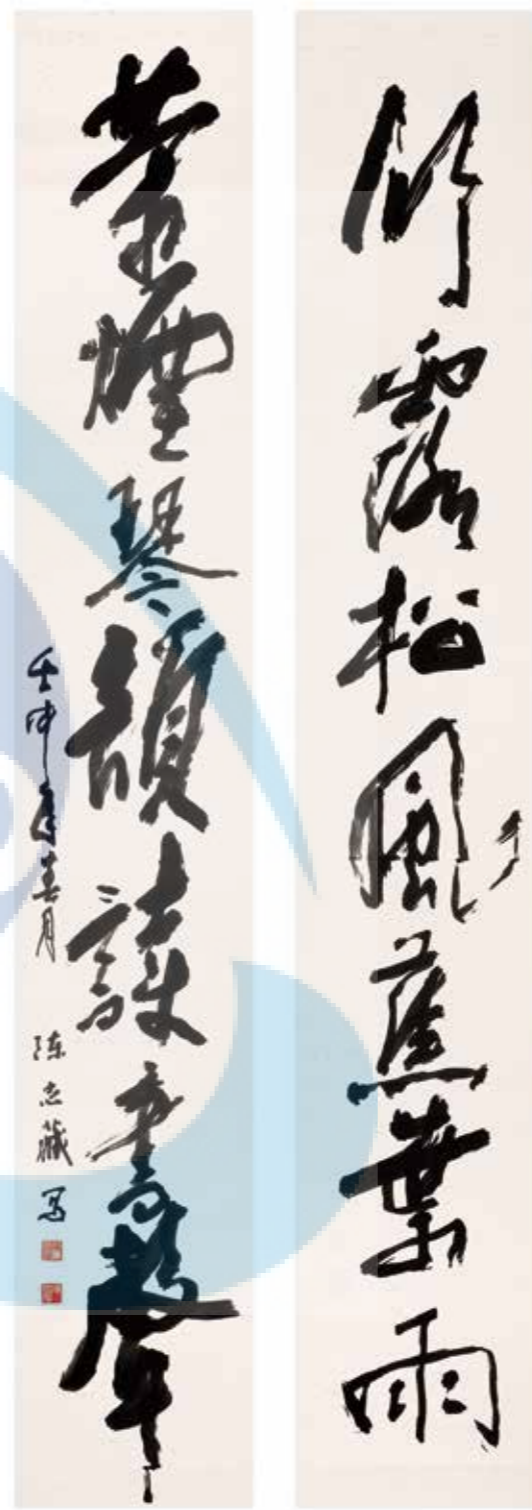 竹露松風蕉葉雨
茶煙琴韻讀書聲
壬申年春月 陈志藏 写